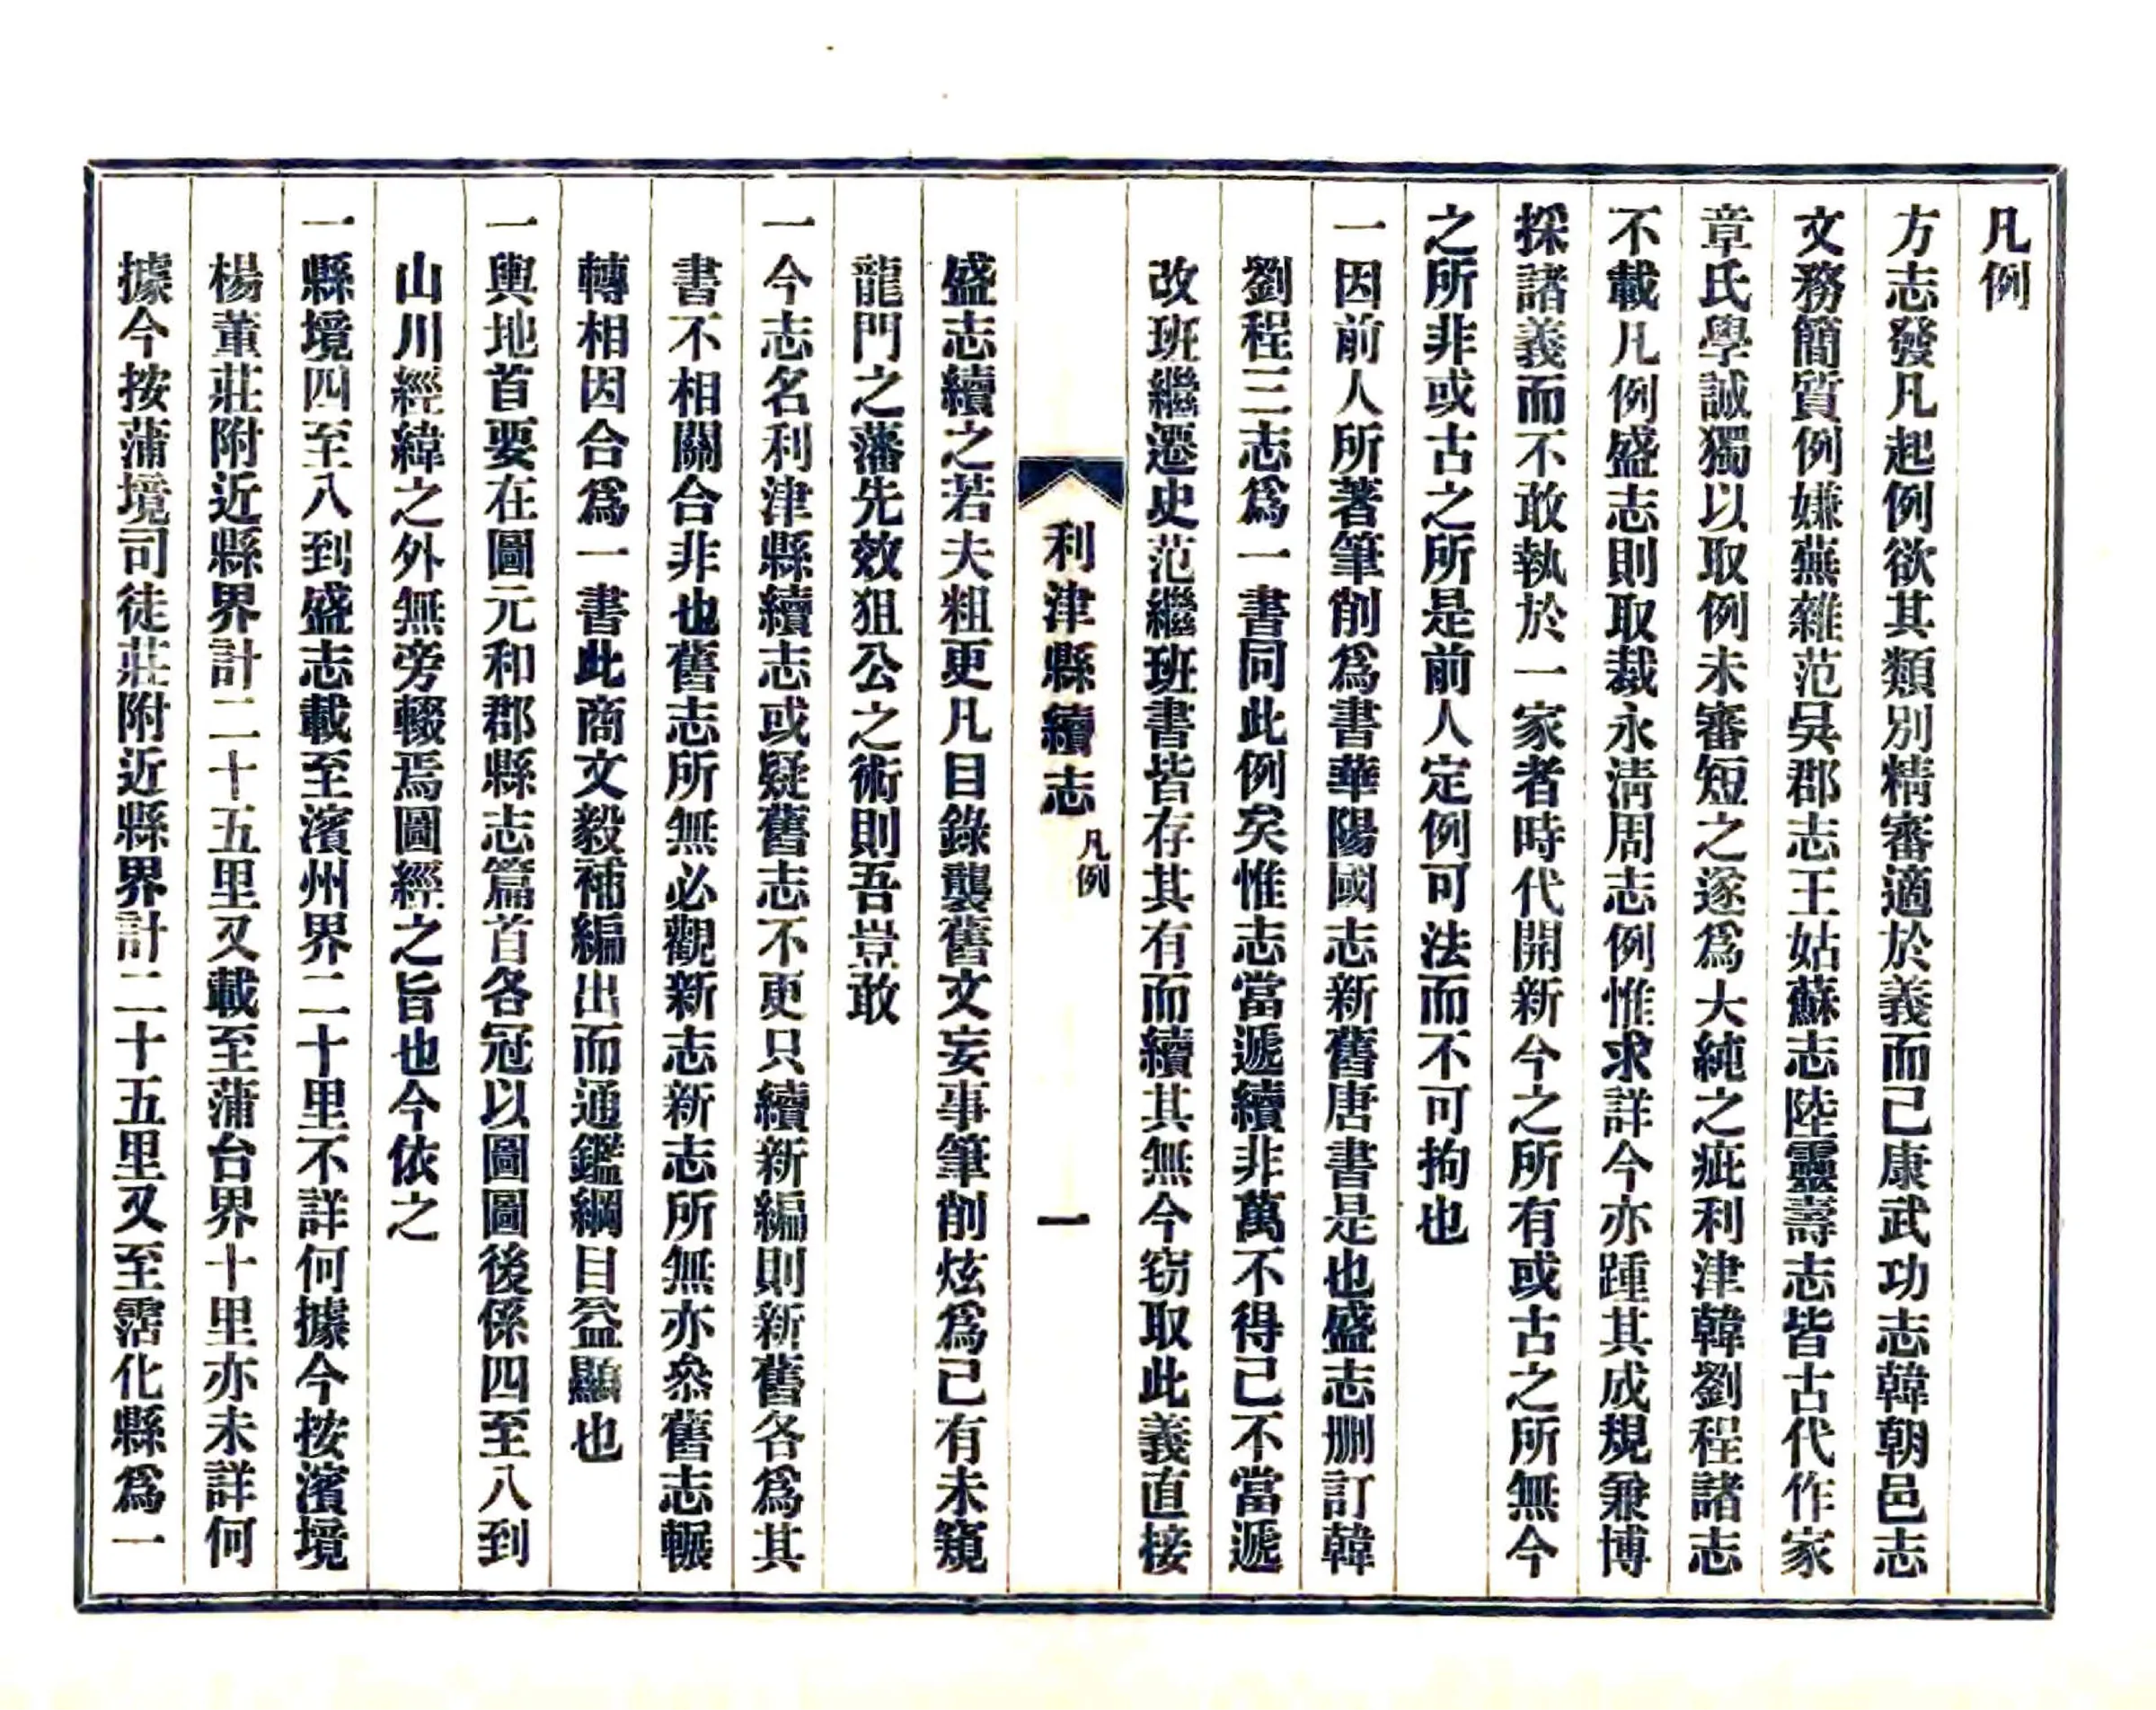 凡例
方志發凡起例欲其類別精審適於義而已康武功志韓朝邑志
文務簡質例嫌蕪雜范吳郡志王姑蘇志陸靈壽志皆古代作家
章氏學誠獨以取例未審短之遂爲大純之疵利津韓劉程諸志
不載凡例盛志則取裁永淸周志例惟求詳今亦踵其成規兼博
採諸義而不敢執於一家者時代開新今之所有或古之所無今
之所非或古之所是前人定例可法而不可拘也
一因前人所著筆削爲書華陽國志新舊唐書是也盛志删訂韓
劉程三志爲一書同此例矣惟志當遞續非萬不得已不當遞
改班繼遷史范繼班書皆存其有而續其無今窃取此義直接
利津縣續志 凡例 一
盛志續之若夫粗更凡目錄襲舊文妄事筆削炫爲己有未窺
龍門之藩先效狙公之術則吾豈敢
一今志名利津縣續志或疑舊志不更只續新編則新舊各爲其
書不相關合非也舊志所無必觀新志新志所無亦叅舊志輾
轉相因合爲一書此商文毅補編出而通鑑綱目益顯也
一輿地首要在圖元和郡縣志篇首各冠以圖圖後係四至八到
山川經緯之外無旁輟焉圖經之旨也今依之
一縣境四至八到盛志載至濱州界二十里不詳何據今按濱境
楊董莊附近縣界計二十五里又載至蒲台界十里亦未詳何
據今按蒲境司徒莊附近縣界計二十五里又至霑化縣爲一